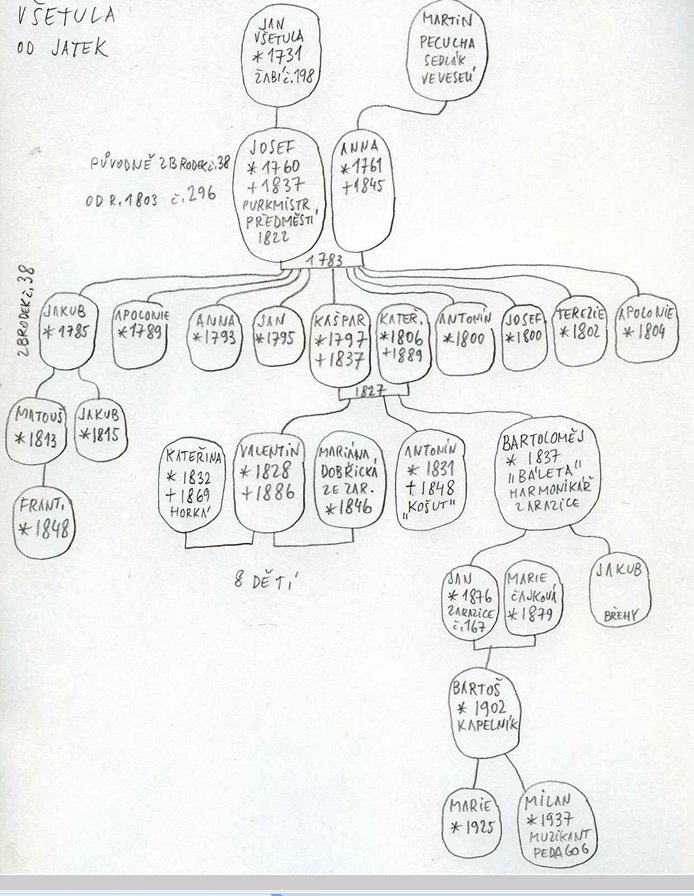 VŠETULA
OD JATEK
JAN
VŠETULA
*1731
ŽABÍ č.198
MARTIN
PECUCHA
SEDLÁK
VE VESELÍ
PŮVODNĚ ZBRODEK č.38
OD R.1803 č.296
JOSEF
*1760
+1837
PURKMISTR
PŘEDMĚSTÍ
1822
ANNA
*1761
+1845
1783
ZBRODEK č.38
JAKUB
*1785
APOLONIE
*1789
ANNA
*1793
JAN
*1795
KAŠPAR
*1797
+1837
KATEŘ.
*1806
+1889
ANTONÍN
*1800
JOSEF
*1800
TEREZIE
*1802
APOLONIE
*1804
1827
MATOUŠ
*1813
JAKUB
*1815
FRANT.
*1848
KATEŘINA
*1832
+1869
HORKÁ
VALENTIN
*1828
+1886
MARIÁNA
DOBŘICKÁ
ZE ZAR.
*1846
ANTONÍN
*1831
+1848
"KOŠUT"
BARTOLOMĚJ
*1837
"BÁLETA"
HARMONIKÁŘ
ZARAZICE
8 DĚTÍ
JAN
*1876
ZARAZICE
č.167
MARIE
ČAJKOVÁ
*1879
JAKUB
BŘEHY
BARTOŠ
*1902
KAPELNÍK
MARIE
*1925
MILAN
*1937
MUZIKANT
PEDAGOG